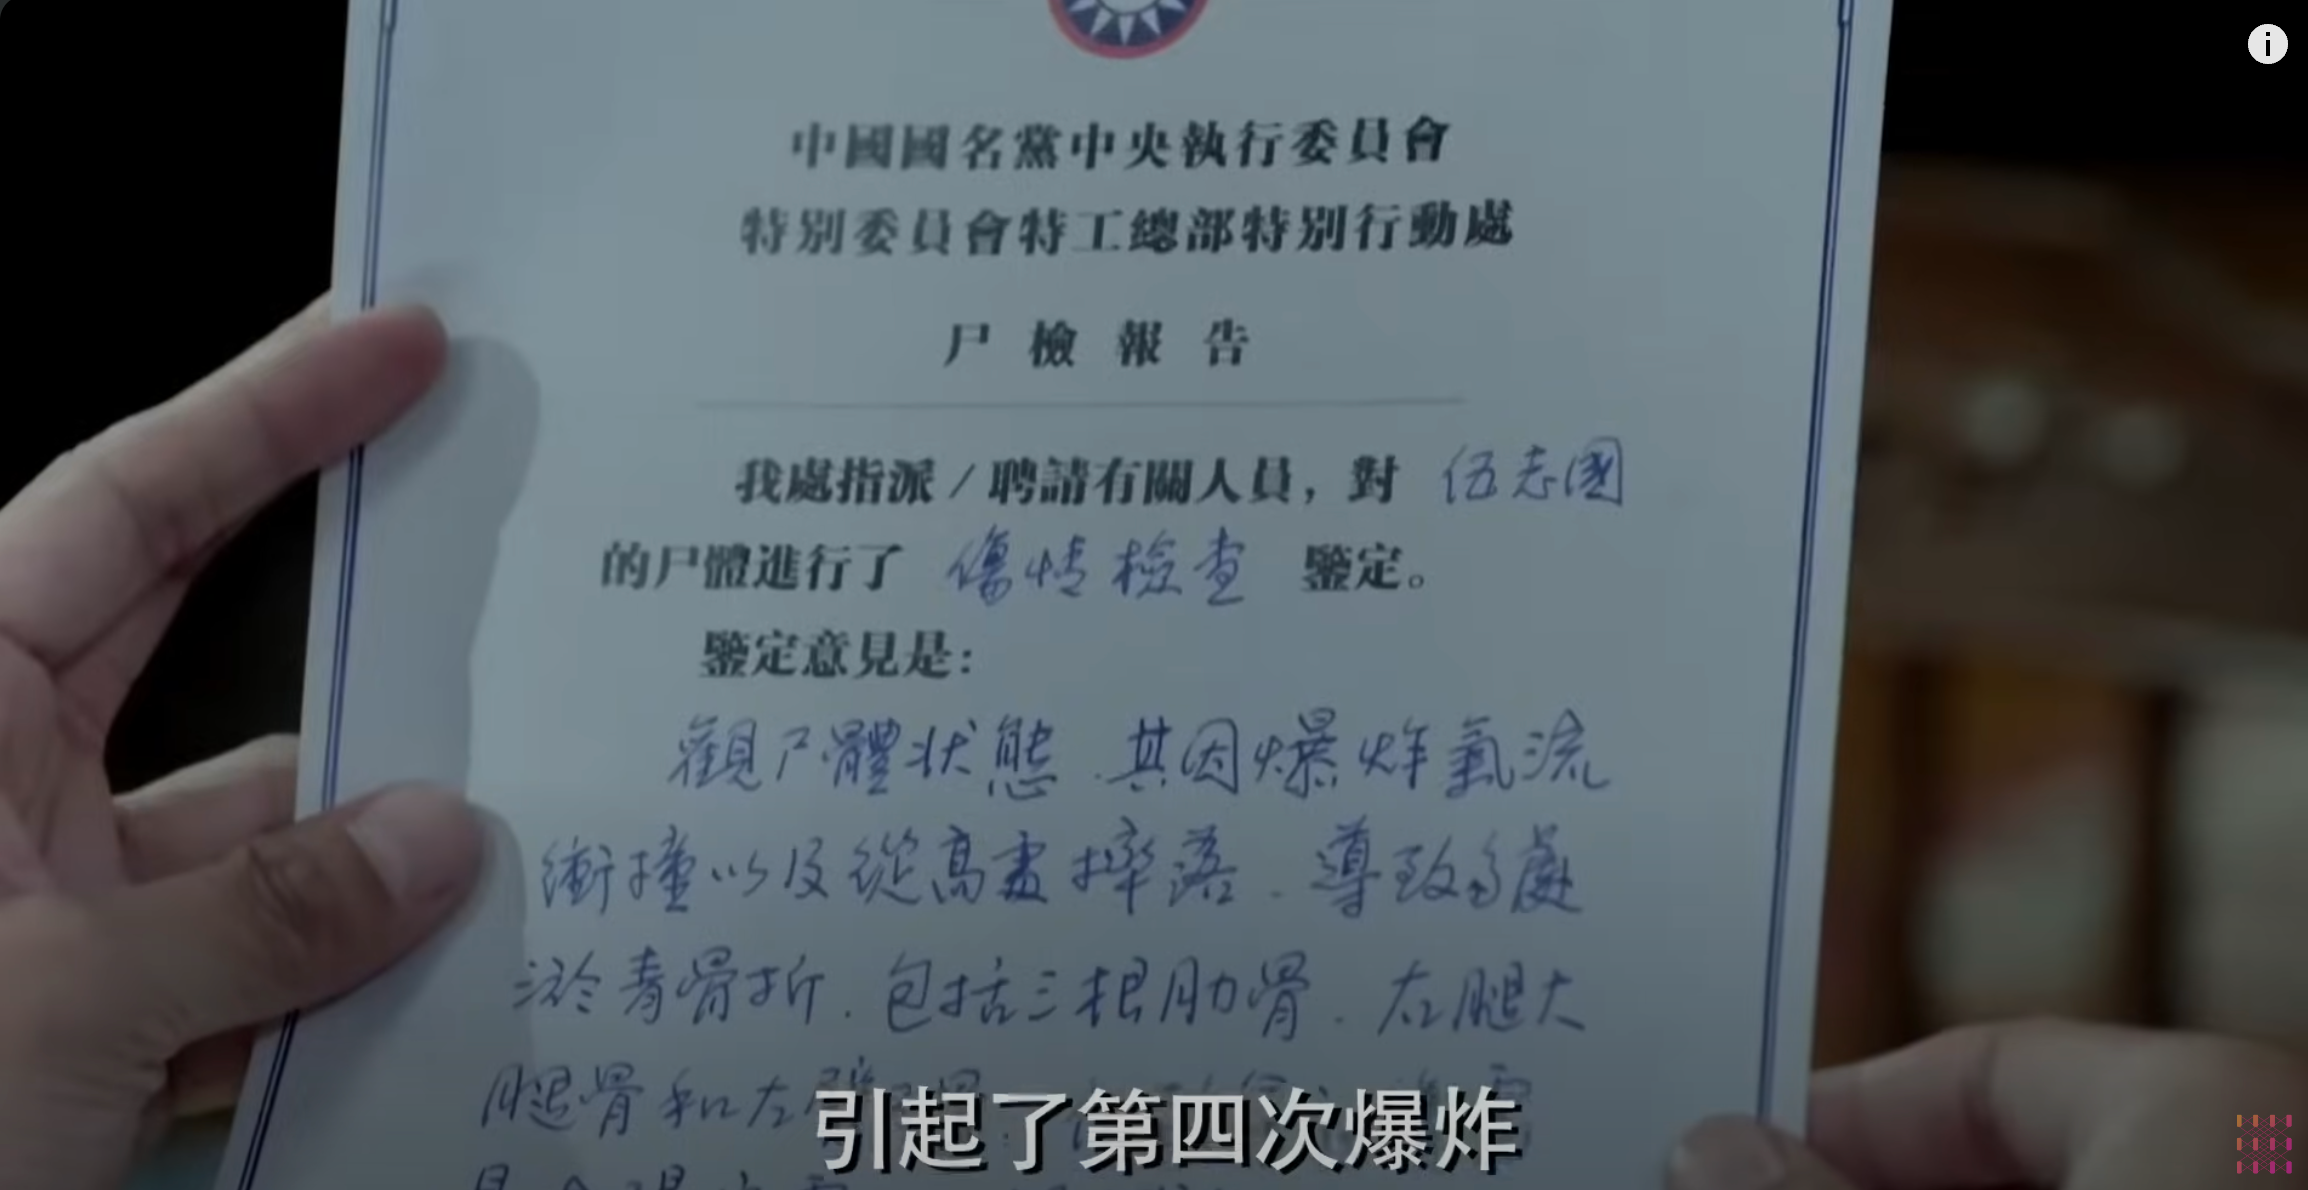 中國國名黨中央執行委員會
特別委員會特工總部特別行動處
尸檢報告
我處指派/聘請有關人員，對 伍志國
的尸體進行了 傷情檢查 鑒定。
鑒定意見是：
觀尸體狀態.其因爆炸氣流
衝撞以及從高處摔落.導致多處
淤青骨折.包括三根肋骨.左腿大
腿骨和左
引起了第四次爆炸